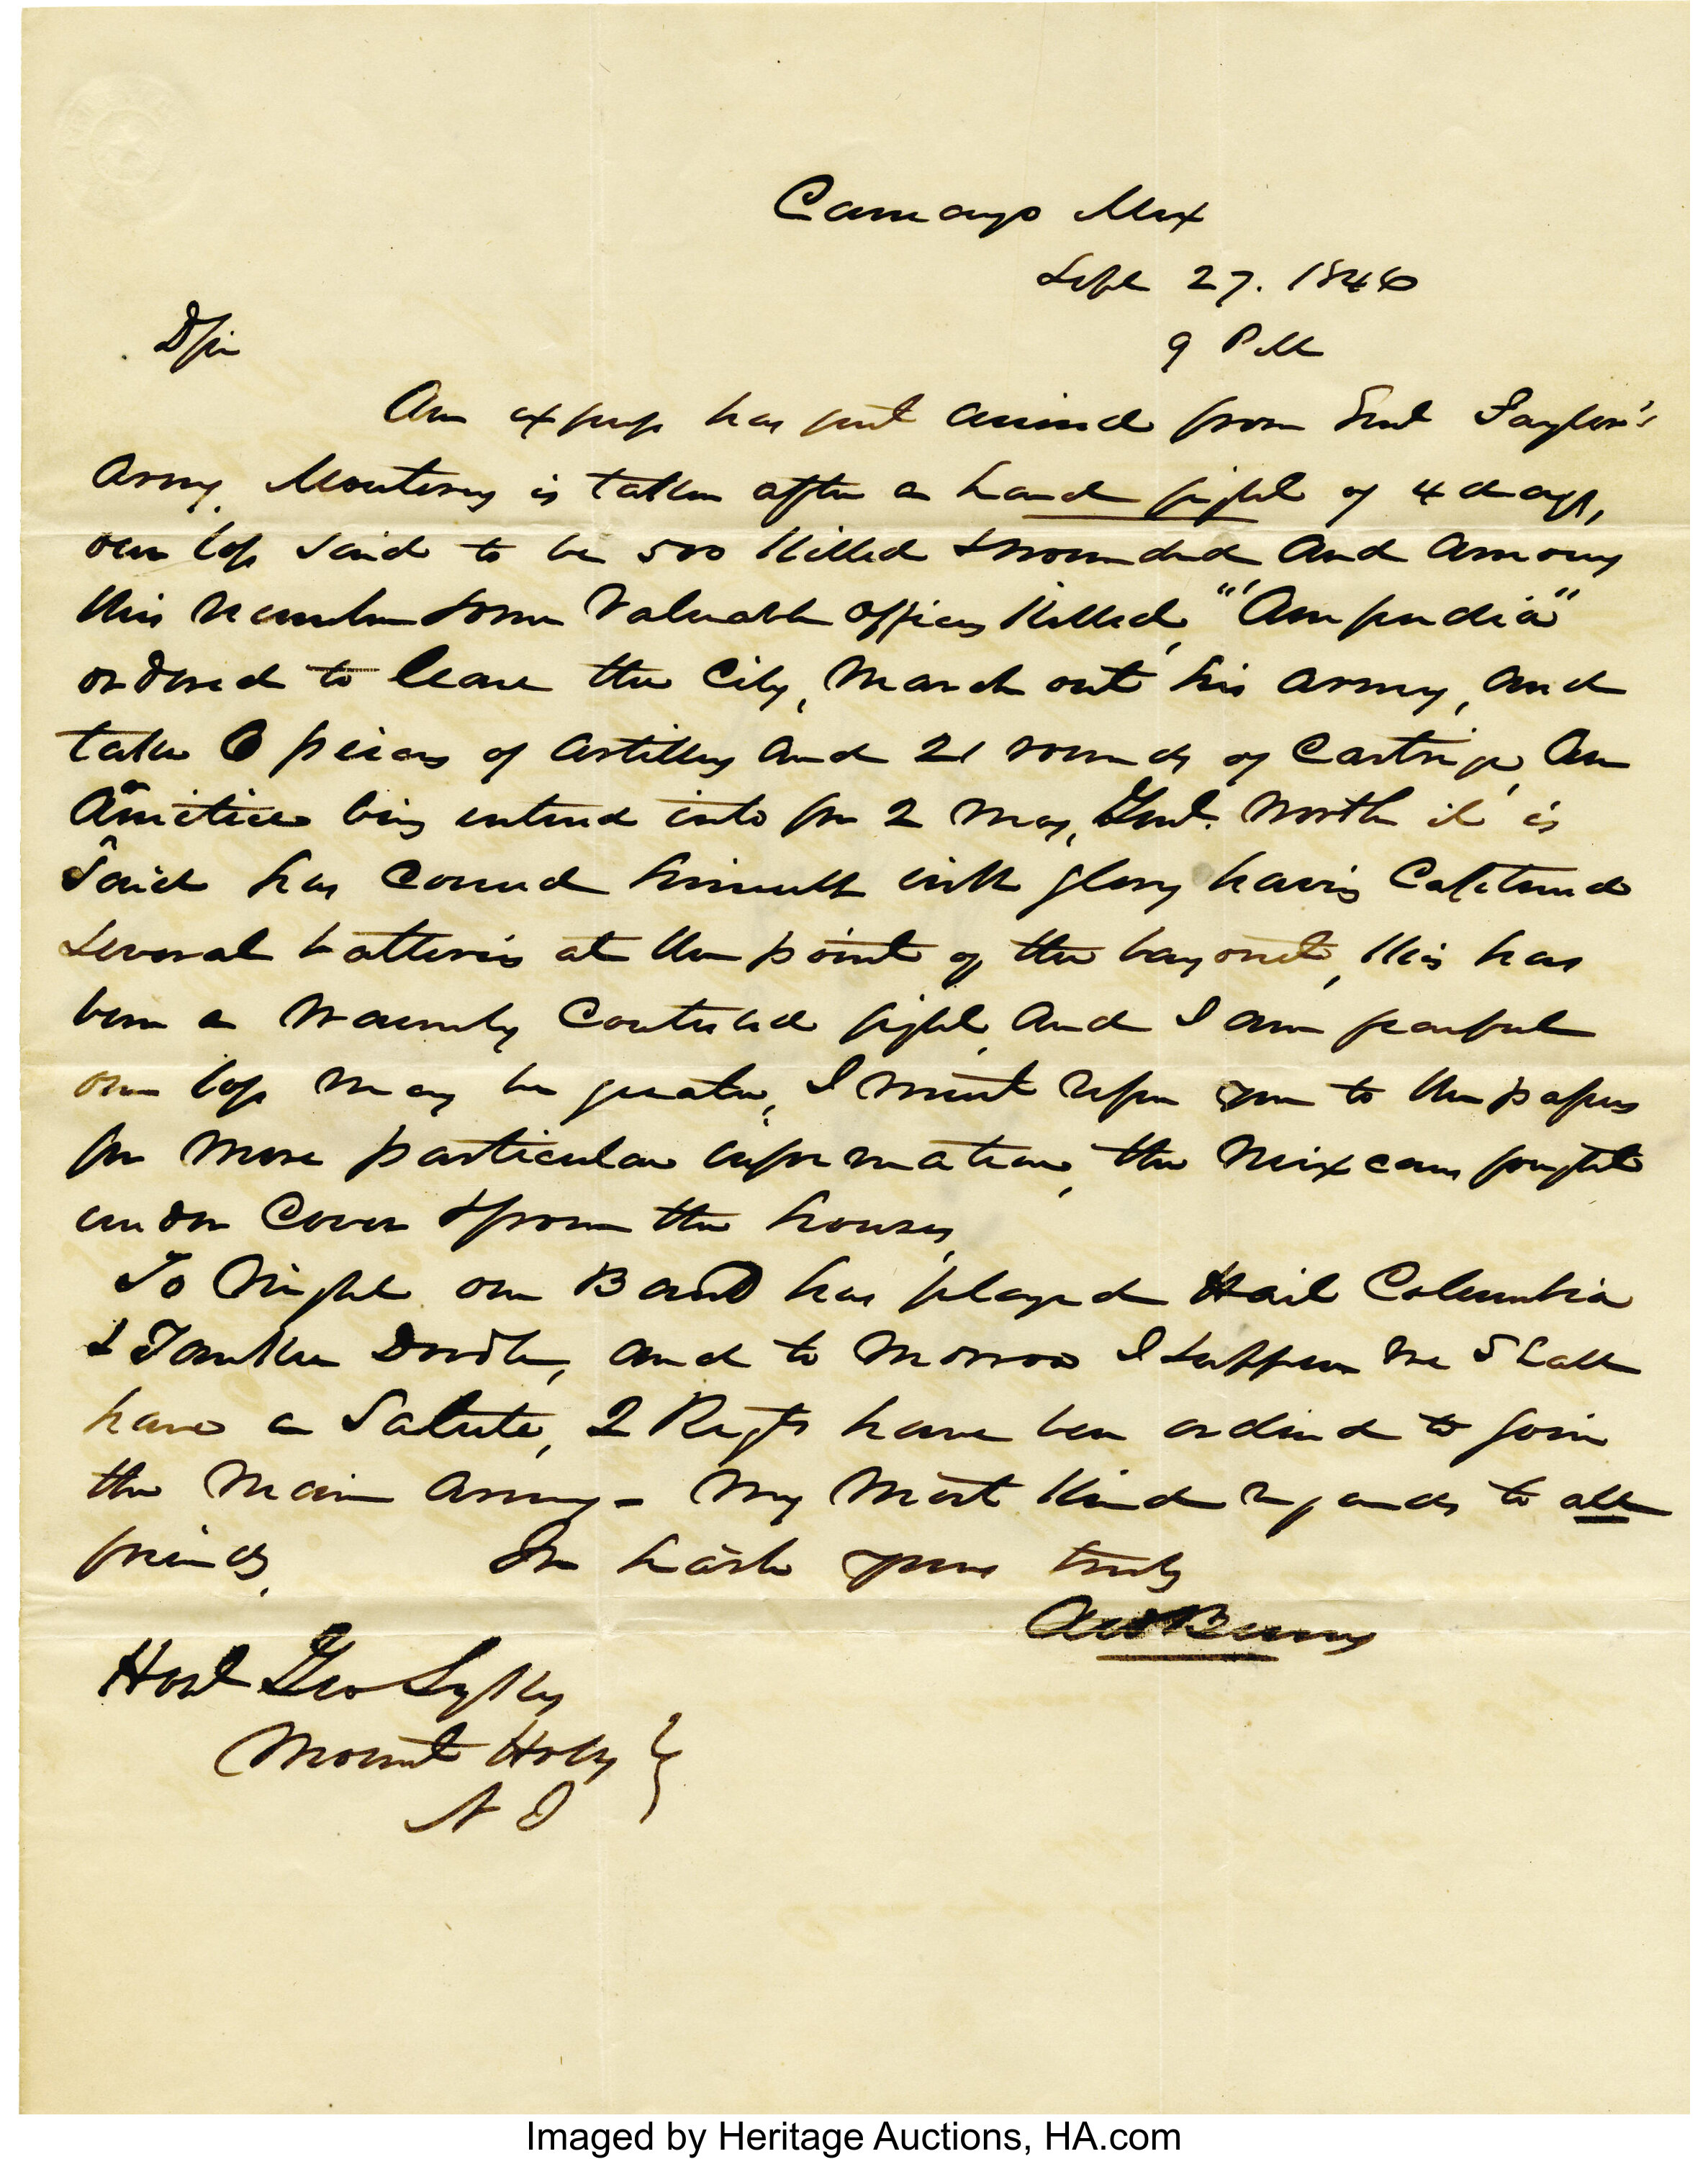 Camargo Mex
Sept 27. 1846
9 PM
D Sir
An express has just arrived from Genl Taylor's
Army, Monterey is taken after a hard fight of 4 days,
our loss said to be 500 killed & wounded and among
this number some valuable officers killed, "Ampudia"
ordered to leave the City, march out his army, and
take 6 pieces of artillery and 21 rounds of Cartrige, An
Amistice being entered into for 2 mos, Genl. Worth it is
said has covered himself with glory having Captured
several batteries at the point of the bayonet, this has
been a warmly contested fight, and I am fearful
our loss may be greater, I must refer you to the papers
for more particular information, the Mexicans fought
under cover & from the houses,
To Night our Band has played Hail Columbia
& Yankee Doodle, and to morrow I suppose we shall
have a Salute, 2 Regts have been ordered to join
the main army - My most kind regards to all
friends, In haste yours truly
Hon Geo Sykes
Mount Holly
N J
Imaged by Heritage Auctions, HA.com